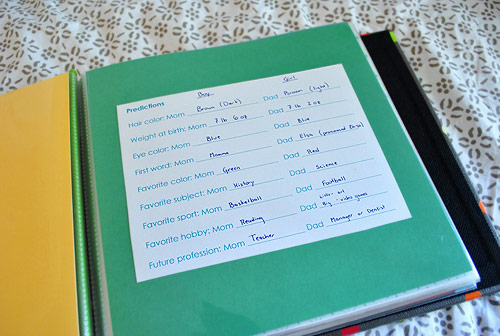 Boy Girl
Predictions
Hair color: Mom Brown (Dark) Dad Brown (light)
Weight at birth: Mom 7 lb 6 oz Dad 7 lb 2 oz
Eye color: Mom Blue Dad Blue
First word: Mom Momma Dad Elsa (pronounced
Favorite color: Mom Green Dad Red
Favorite subject: Mom History Dad Science
Favorite sport: Mom Basketball Dad Football
Favorite hobby: Mom Reading Dad Little: art Big: video games
Future profession: Mom Teacher Dad Manager or Dentist